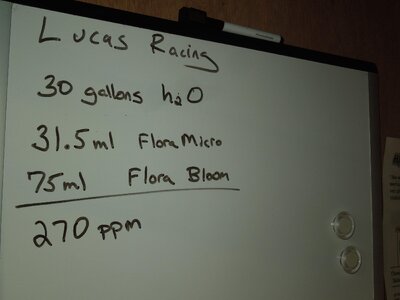 Lucas Racing
30 gallons h2O
31.5ml Flora Micro
75ml Flora Bloom
270 ppm